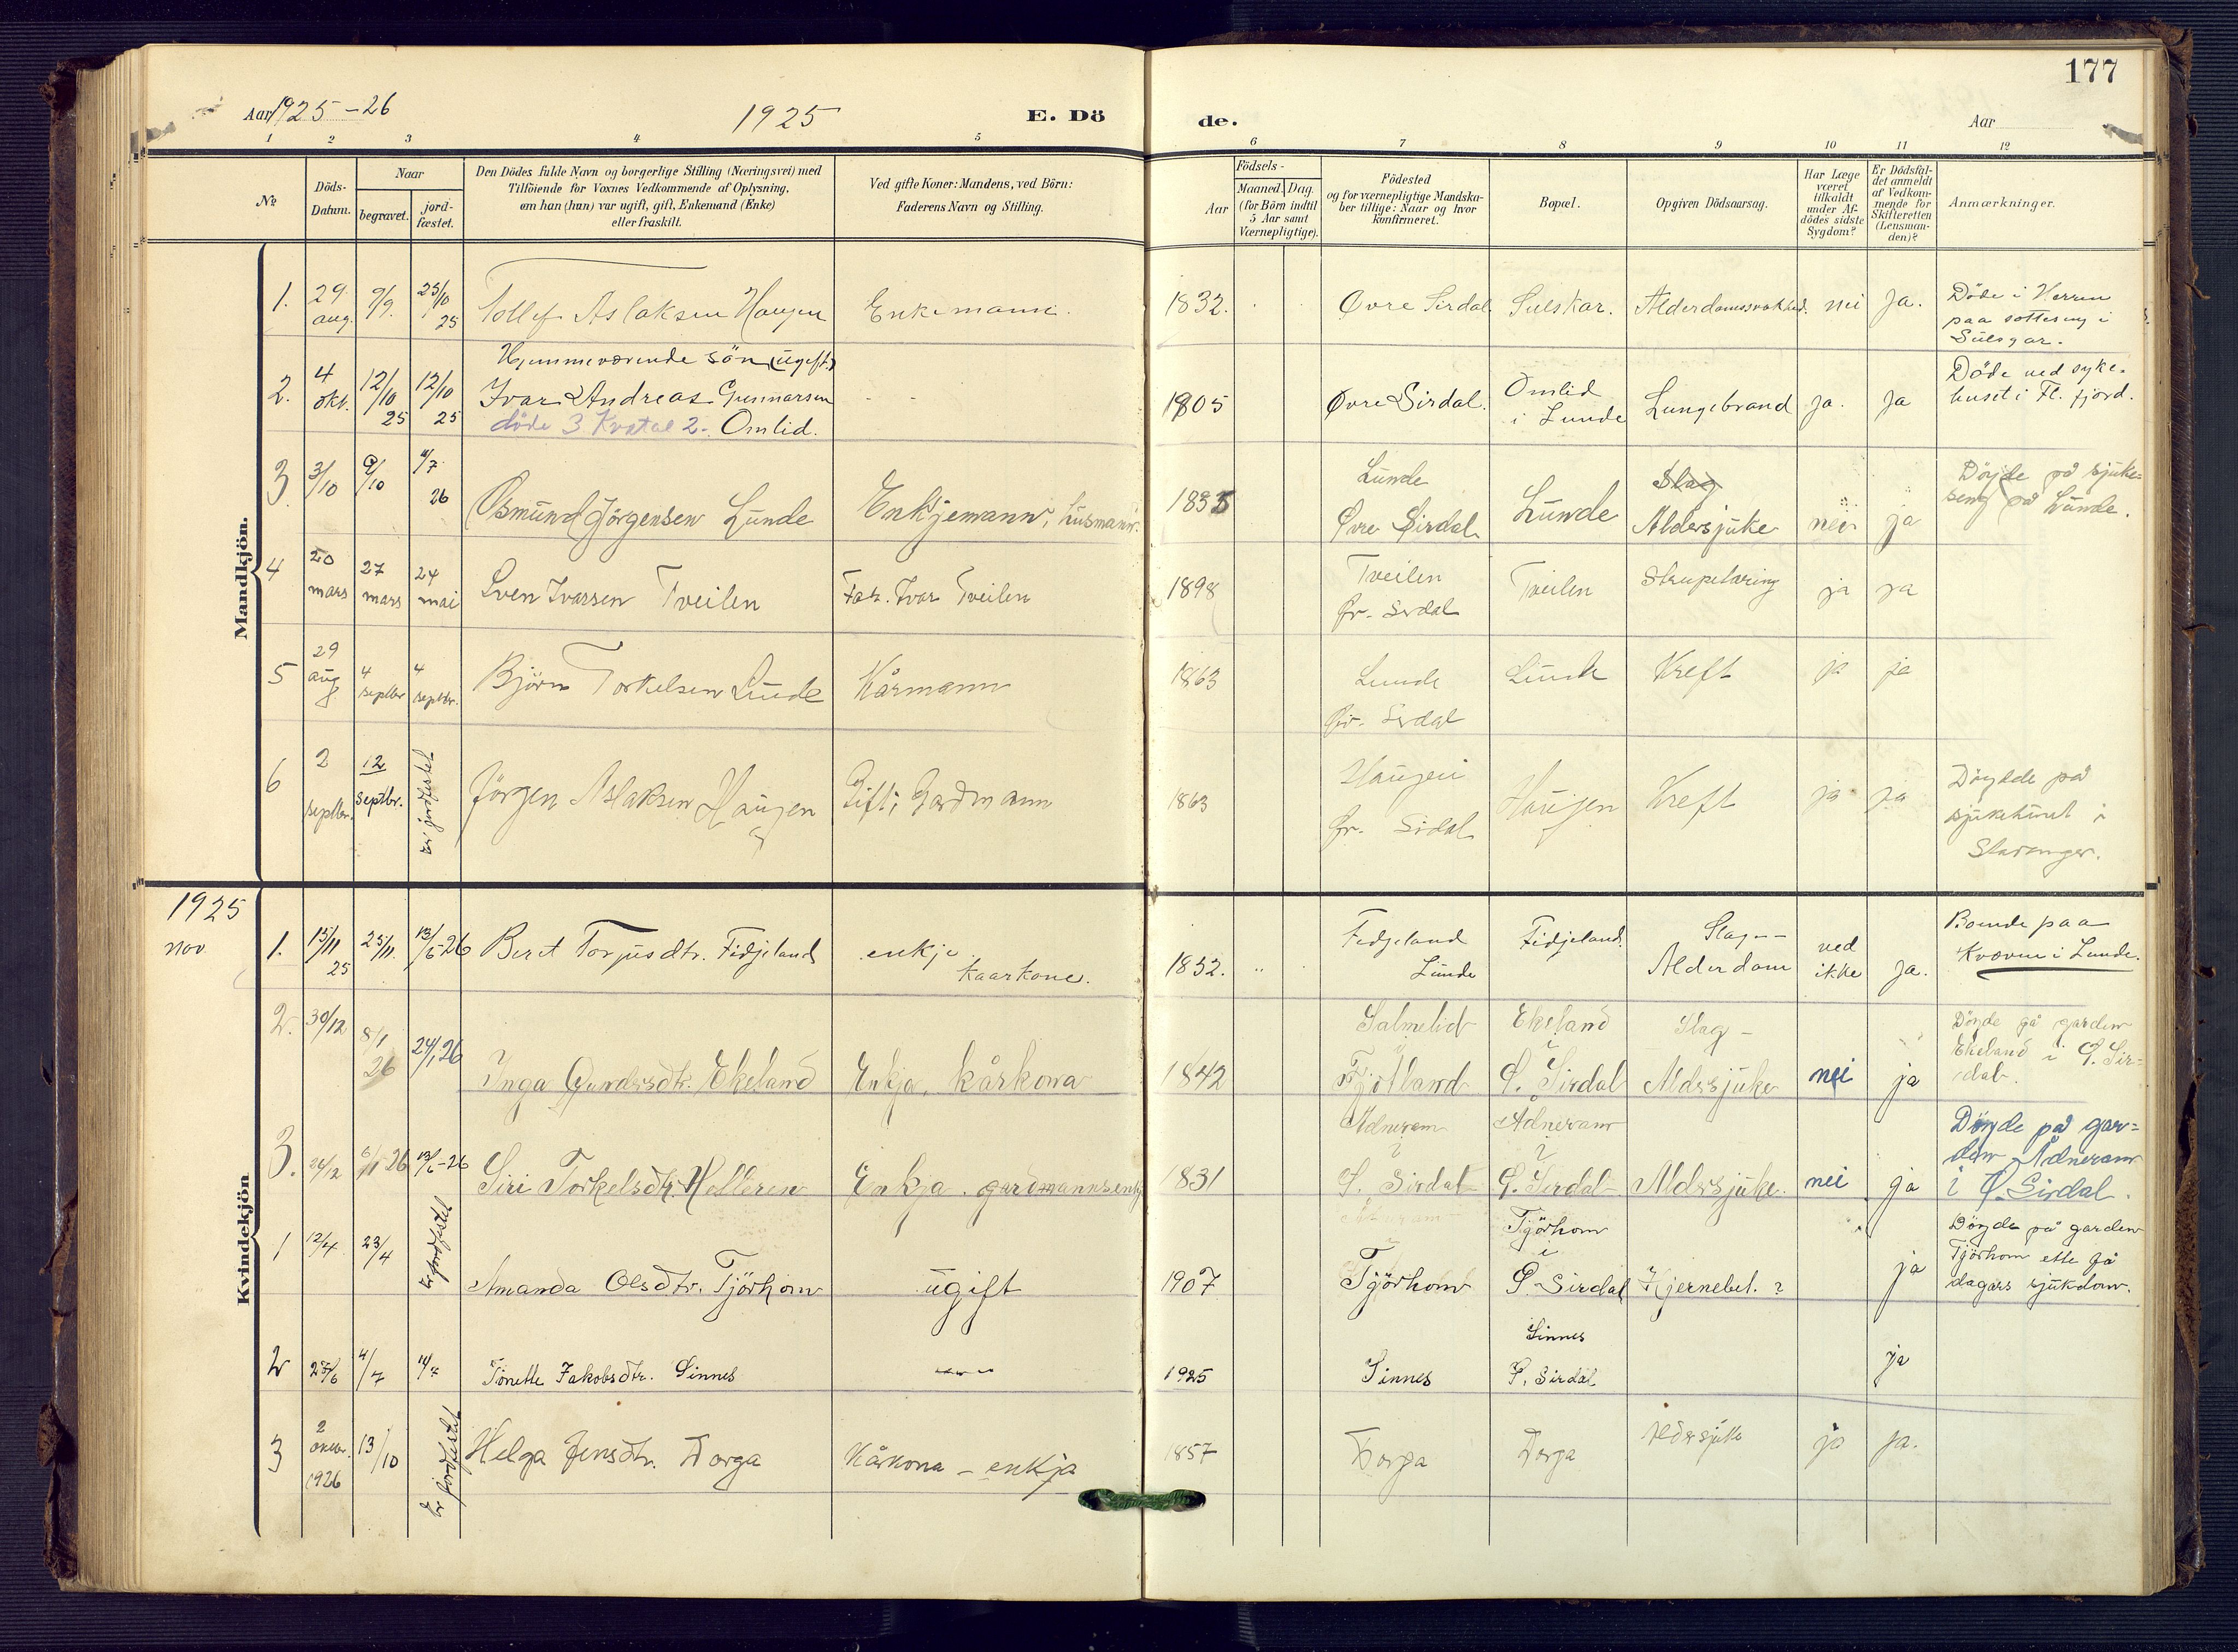 177
Aar 1925-26
1925
E. Dö
de.
Aar
1 2 3 4 5 6 7 8 9 10 11 12
№
Döds-
Datum.
Naar
begravet.
jord-
fæstet.
Den Dödes fulde Navn og borgerlige Stilling (Næringsvei) med
Tilföiende for Voxnes Vedkommende af Oplysning,
om han (hun) var ugift, gift, Enkemand (Enke)
eller fraskilt.
Ved gifte Koner: Mandens, ved Börn:
Faderens Navn og Stilling.
Födsels-
Aar
Maaned. Dag.
(for Börn indtil
5 Aar samt
Værnepligtige).
Födested
og for værnepligtige Mandska-
ber tillige: Naar og hvor
konfirmeret.
Bopæl.
Opgiven Dödsaarsag.
Har Læge
været
tilkaldt
under Af-
dödes sidste
Sygdom?
Er Dödsfal-
det anmeldt
af Vedkom-
mende for
Skifteretten
(Lensman-
den)?
Anmærkninger.
Mandkjön.
1. 29 aug. 9/9. 25/10 25 Tollef Aslaksen Haugen Enkemann. 1832. Øvre Sirdal. Sulskar. Alderdomssvakhed. nei Ja.
Döde i Herren
paa sotteseng i
Sulsgar.
Hjemmeværende sön (ugift)
2. 4 okt. 12/10 25 12/10 25 Ivar Andreas Gunnarsen 1905 Øvre Sirdal. Omlid i Lunde Lungebrand ja. Ja
döde 3 Kvatal 2. Omlid.
Döde ved syke-
huset i Fl. fjord.
3 3/10 9/10 11/7 26 Osmund Jörgensen Lunde Enkjemann, husmann. 1835 Lunde Øvre Sirdal Lunde Slag Aldersjuke nei ja
Döyde på sjuke-
seng på Lunde.
4 20 mars 27 mars 24 mai Sven Ivarsen Tveilen Far. Ivar Tveilen 1898 Tveilen Ør. Sirdal Tveilen Strupetæring ja ja
5 29 aug 4 septbr 4 septbr. Björn Torkelsen Lunde Kårmann 1863 Lunde Øv. Sirdal Lunde Kreft ja ja
6 2 septbr. 12 septbr. Er jordfestet Jörgen Aslaksen Haugen Gift, Gardmann 1863 Haugen Ør. Sirdal Haugen Kreft ja ja
Döydde på
sjukehuset i
Stavanger.
Kvindekjön
1925
nov
1. 15/11 25 25/11. 13/5-26 Berit Torjusdtr. Fidjeland enkje kaarkone. 1832. Fidjeland Lunde Fidjeland. Slag-- Alderdom ved ikke ja.
Boende paa
Kvæven i Lunde.
2. 30/12 8/1 26 24/1 26 Inga Gundersdtr. Ekeland Enkja, kårkona 1842 Salmelid Fjotland Ekeland i Ø. Sirdal Slag - Aldersjuke nei ja
Döyde på garden
Ekeland i Ø. Sir-
dal.
3. 26/12 6/1 26 13/5-26 Siri Torkelsdtr. Helleren Enkja. gardmannsenkj 1831 Adneram i Ø. Sirdal Adneram i Ø. Sirdal Aldersjuke. nei ja
Döyde på gar-
den Ådneram
i Ø. Sirdal.
1 12/4 23/4 Er jordfestet Amanda Olsdtr. Tjörhom ugift 1907 Tjörhom Tjörhom i Ø. Sirdal Hjernebet. ? ja
Döyde på garden
Tjörhom ette få
dagars sjukdom.
2 25/6 4/7 11/7 Tonette Jakobsdtr. Sinnes 1925 Sinnes Sinnes Ø. Sirdal ja
3 2 oktbr. 1926 13/10 Er jordfestet Helga Jensdtr. Dorga Kårkona - enkja 1857 Dorga Dorga Aldersjuke ja ja.